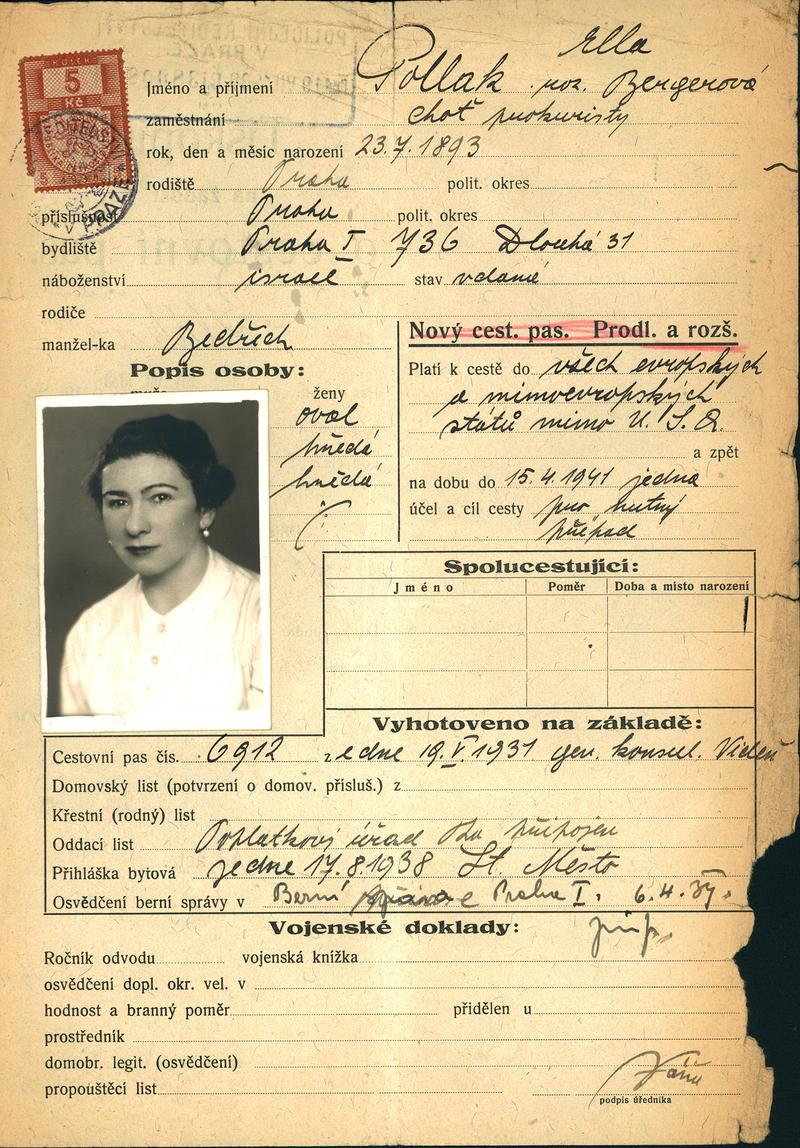 KOLEK
5
Kč
V PRAZE
Ella
Jméno a příjmení Pollak roz. Bergerová
zaměstnání choť prokuristy
rok, den a měsíc narození 23.7.1893
rodiště Praha polit. okres
příslušnost Praha polit. okres
bydliště Praha I 736 Dlouhá 31
náboženství israel stav vdaná
rodiče
manžel-ka Bedřich
Nový cest. pas. Prodl. a rozš.
Platí k cestě do všech evropských
a mimoevropských
států mimo
a zpět
na dobu do 15.4.1941 jedna
účel a cíl cesty pro nutný
případ
Popis osoby:
ženy
oval
hnědá
hnědá
Spolucestující:
Jméno Poměr Doba a místo narození
Vyhotoveno na základě:
Cestovní pas čís. 6912 ze dne 19.V.1931 gen. konsul. Vídeň
Domovský list (potvrzení o domov. přísluš.) z
Křestní (rodný) list
Oddací list Poplatkový úřad připojen
Přihláška bytová ze dne 17.8.1938 St. Město
Osvědčení berní správy v Berní správa Praha I. 6.4.39.
Vojenské doklady:
Ročník odvodu vojenská knížka
osvědčení dopl. okr. vel. v
hodnost a branný poměr přidělen u
prostředník
domobr. legit. (osvědčení)
propouštěcí list
podpis úředníka